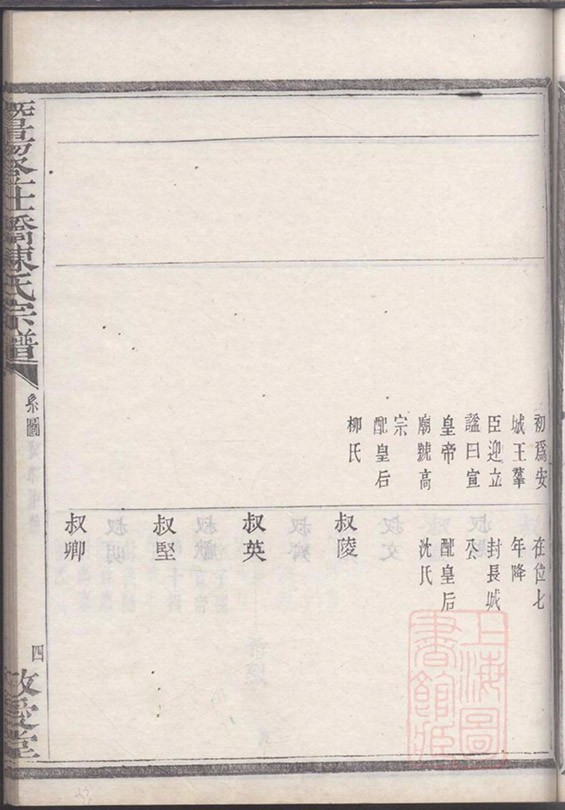 初爲安
城王羣
臣迎立
謚曰宣
皇帝
廟號高
宗
配皇后
柳氏
在位七
年降
封長城
公
配皇后
沈氏
叔陵
叔英
叔堅
叔卿
暨陽登仕橋陳氏宗譜
系圖
四
敬愛堂
上海圖書館藏